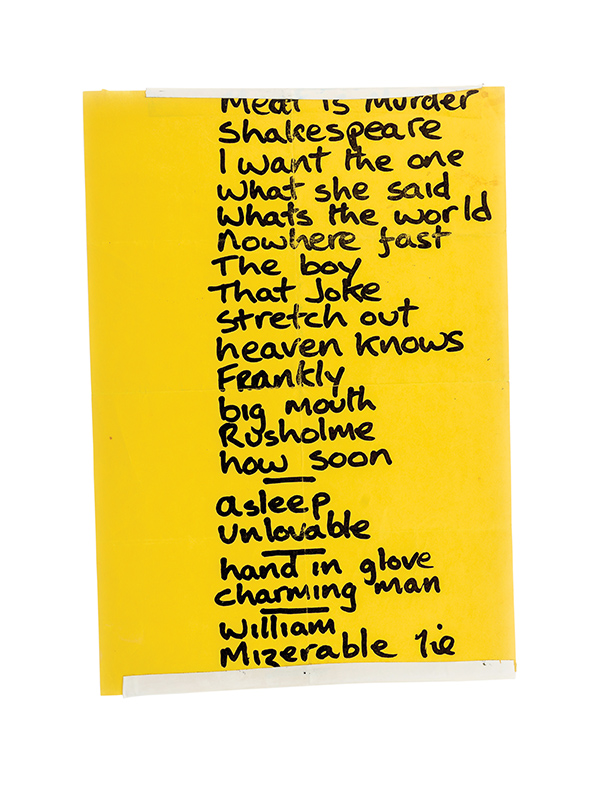 Meat is Murder
Shakespeare
I want the one
what she said
whats the world
nowhere fast
The boy
That Joke
stretch out
heaven knows
Frankly
big mouth
Rusholme
how soon
asleep
unlovable
hand in glove
charming man
william
Mizerable lie